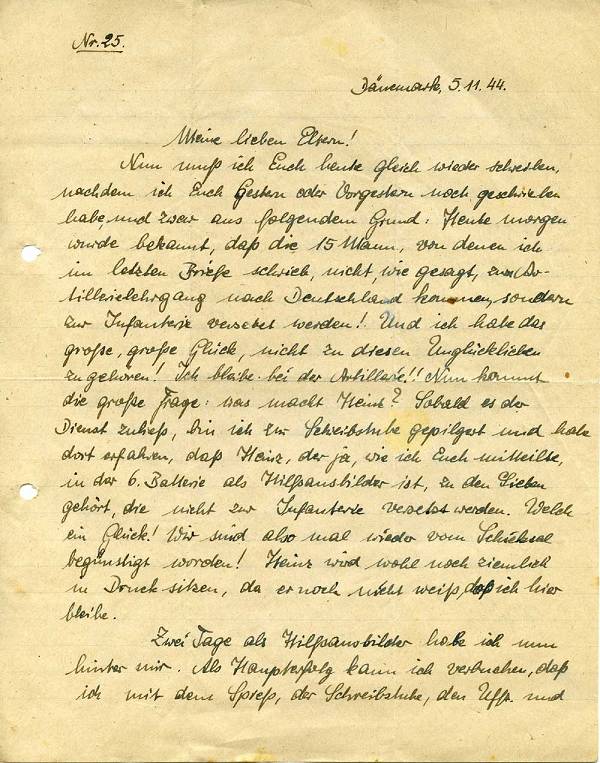 Nr. 25.
Dänemark, 5.11.44.
Meine lieben Eltern!
Nun muß ich Euch heute gleich wieder schreiben,
nachdem ich Euch Gestern oder Vorgestern noch geschrieben
habe, und zwar aus folgendem Grund: Heute morgen
wurde bekannt, daß die 15 Mann, von denen ich
im letzten Briefe schrieb, nicht, wie gesagt, zum Ar-
tillerielehrgang nach Deutschland kommen, sondern
zur Infanterie versetzt werden! Und ich habe das
große, große Glück, nicht zu diesen Unglücklichen
zu gehören! Ich bleibe bei der Artillerie!! Nun kommt
die große Frage: was macht Heinz? Sobald es der
Dienst zuließ, bin ich zur Schreibstube gepilgert und habe
dort erfahren, daß Heinz, der ja, wie ich Euch mitteilte,
in der 6. Batterie als Hilfsausbilder ist, zu den Sieben
gehört, die nicht zur Infanterie versetzt werden. Welch
ein Glück! Wir sind also mal wieder vom Schicksal
begünstigt worden! Heinz wird wohl noch ziemlich
in Druck sitzen, da er noch nicht weiß, daß ich hier
bleibe.
Zwei Tage als Hilfsausbilder habe ich nun
hinter mir. Als Haupterfolg kann ich verbuchen, daß
ich mit dem Spieß, der Schreibstube, den Uffz. und